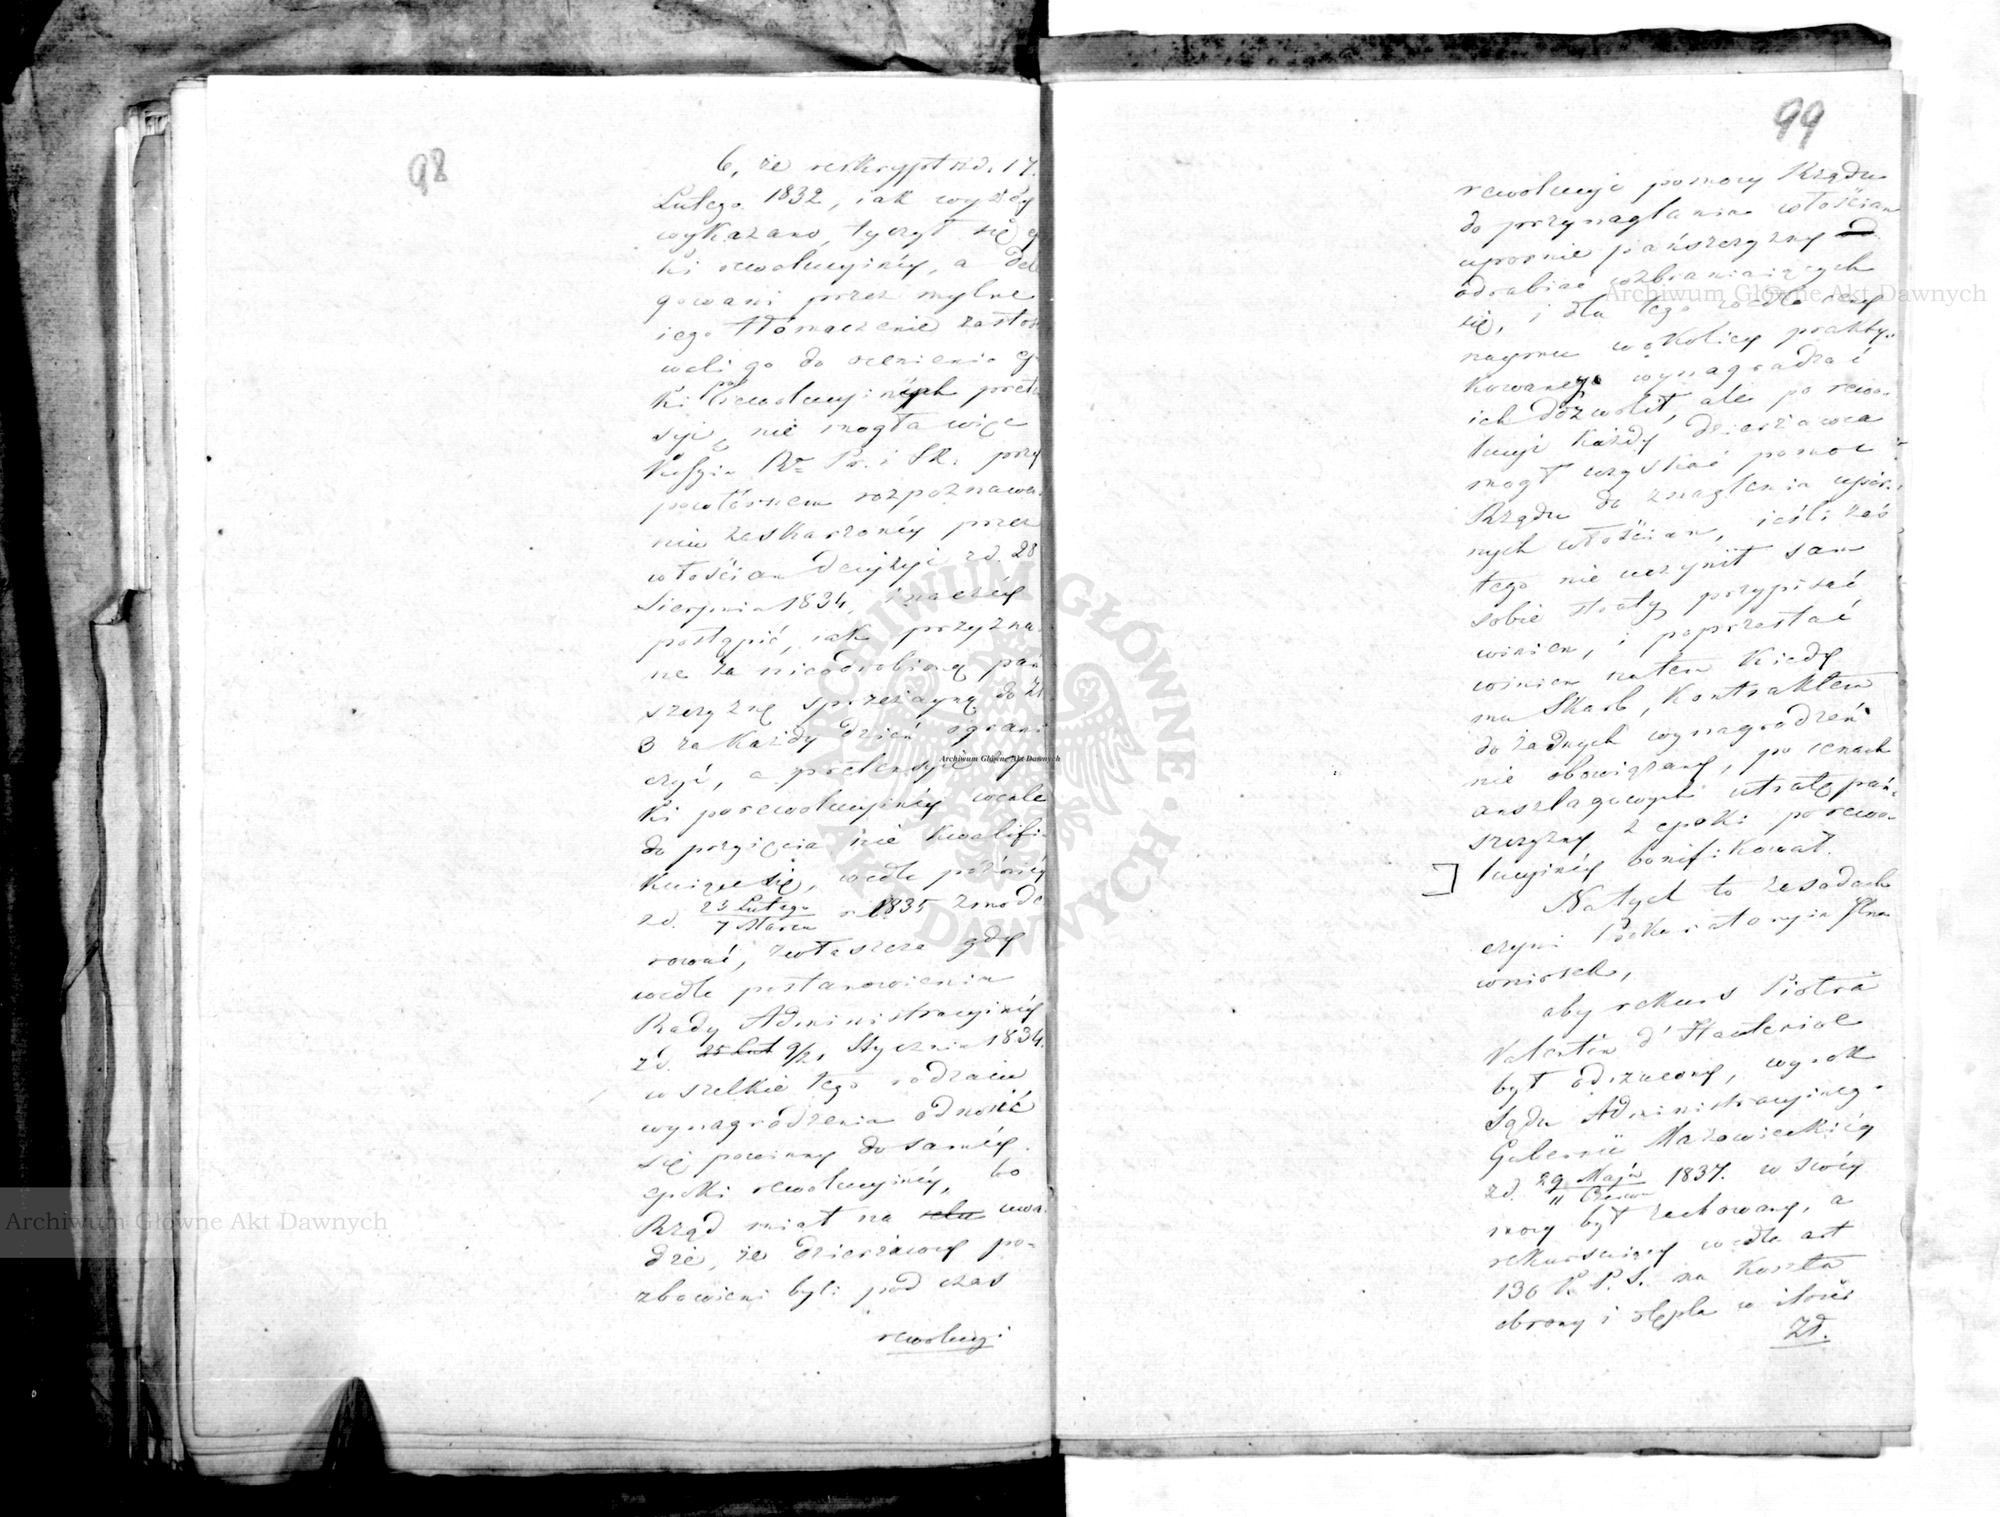 98
6, że reskrypt zd. 17.
Lutego 1832, iak wyżéy
wykazano, tyczył się e
ki rewolucyinéy, a dele
gowani przez mylne
iego tłómaczenie zastoso
wali go do ocenienia e
ki rewolucyinych prete
syi, nie mogła więc
Kossya Rwa Pr. i Sk. przy
powtórnem rozpoznawa
niu zaskarżonéy przez
włościan decyzyi zd. 28
Sierpnia 1834, inaczéy
postąpić, iak przyzna
ne za nieodrobioną pań
szczyznę sprzężayną do Zł
3 za każdy dzień ograni
czyć, a pretensye
ki porewolucyinéy wcale
do przyięcia nie kwalifi
kuiące się, wedle późniéy
zd. 23 Lutego / 7 Marca r. 1835 zmode
rować, zwłaszcza gdy
wedle postanowienia
Rady Administracyinéy
zd. 9/21 Stycznia 1834.
wszelkie tego rodzaiu
wynagrodzenia odnosić
się powinny do saméy
epoki rewolucyinéy, bo
Rząd miał na uwa
dze, że dzierżawcy po-
zbawieni byli pod czas
rewolucyi
99
rewolucyi pomocy Rządu
do przynaglania włościan
upornie pańszczyzny
odrabiać wzbraniaiących
się, i dla tego wedle ceny
naymu w okolicy prakty-
kowanego wynagradzać
ich dozwolił, ale po rewo-
lucyi każdy dzierżawca
mógł uzyskać pomoc
Rządu do znaglenia upor-
nych włościan, ieśli zaś
tego nie uczynił sam
sobie straty przypisać
winien, i poprzestać
winien na tem kiedy
mu Skarb, kontraktem
do żadnych wynagrodzeń
nie obowiązany, po cenach
anszlagowych utratę pań-
szczyzny z epoki porewo-
lucyinéy bonifikował.
Na tych to zasadach
czyni Prokuratorya Jlna
wniosek,
aby rekurs Piotra
Valentin d'Hauterive
był odrzucony, wyrok
Sądu Administracyinego
Gubernii Mazowieckiéy
zd. 29 Maja / 11 Czerwca 1837. w swéy
mocy był zachowany, a
rekursuiący wedle art
130 K. P. S. na koszta
obrony i stępla w ilości
Zł.
Archiwum Główne Akt Dawnych
Archiwum Główne Akt Dawnych
Archiwum Główne Akt Dawnych
ARCHIWUM GŁÓWNE AKT DAWNYCH